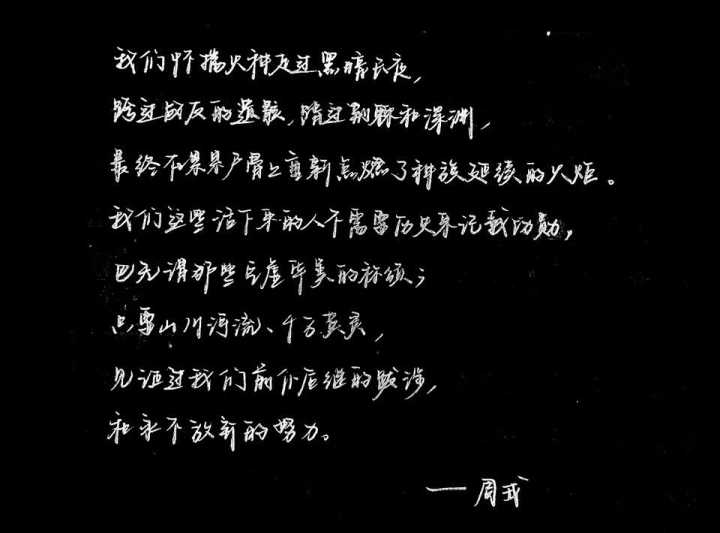 我们怀揣火种度过黑暗长夜，
跨过战友的遗骸，踏过荆棘和深渊，
最终在累累尸骨上重新点燃了种族延续的火炬。
我们这些活下来的人不需要历史来记载功勋，
也无谓那些空虚华美的称颂；
只要山川河流、千万英灵，
见证过我们前仆后继的跋涉，
和永不放弃的努力。
——周戎